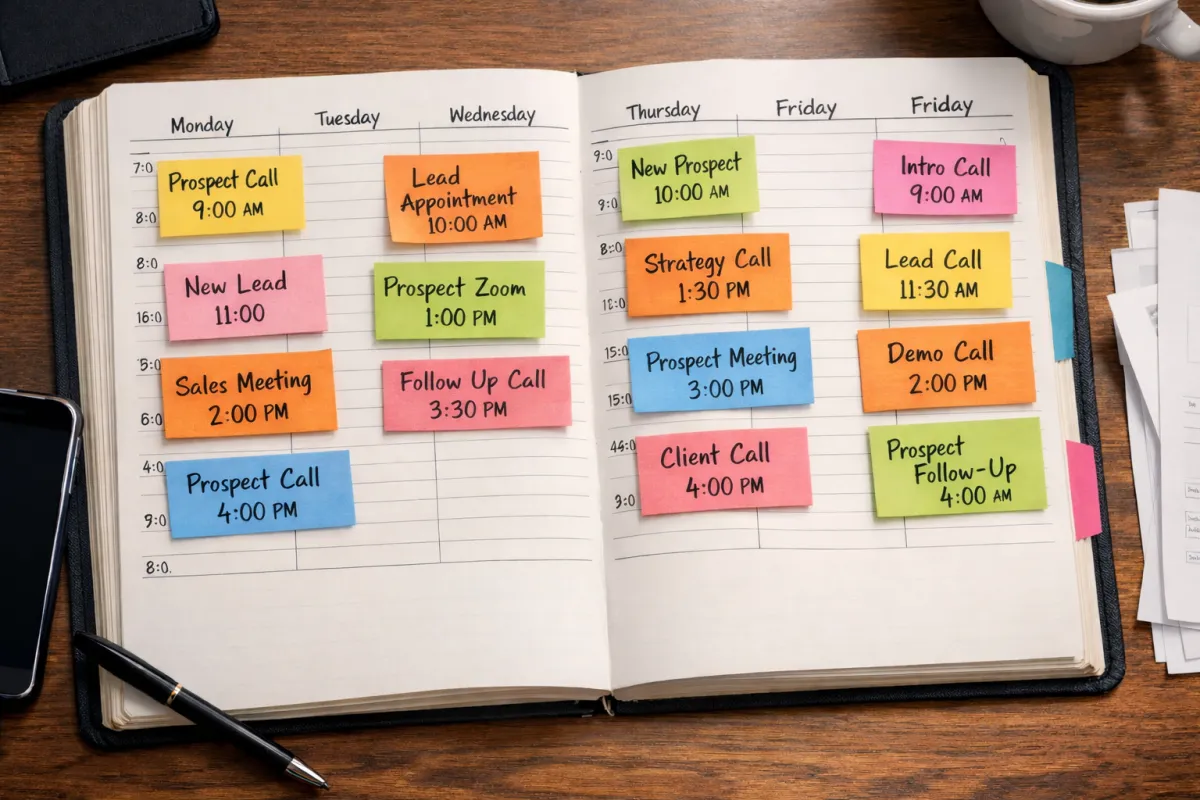 Monday
Tuesday
Wednesday
7:0
Prospect Call
9:00 AM
8:0
Lead
Appointment
10:00 AM
8:0
New Lead
11:00
16:0
Prospect Zoom
1:00 PM
5:0
Sales Meeting
2:00 PM
6:0
Follow Up Call
3:30 PM
4:0
Prospect Call
4:00 PM
9:0
8:0.
Thursday
Friday
Friday
9:0
New Prospect
10:00 AM
9:0
Intro Call
9:00 AM
8:0
Strategy Call
1:30 PM
Lead Call
11:30 AM
15:0
Prospect Meeting
3:00 PM
15:0
Demo Call
2:00 PM
44:0
Client Call
4:00 PM
3:0
Prospect
Follow-Up
4:00 AM